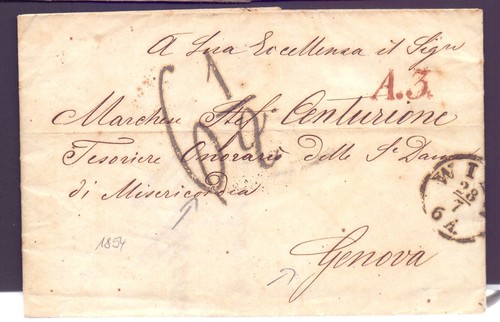 A Sua Eccellenza il Sigr
A.3.
Marchese Centurione
Tesoriere Onorario delle Se Dame
di Misericordia
WI
23
7
6 A.
1854
Genova